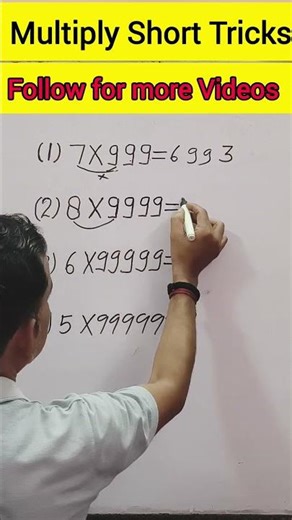 Multiply Short Tricks
Follow for more Videos
(1) 7X999=6993
(2) 8X9999=
) 6X99999=
) 5X99999